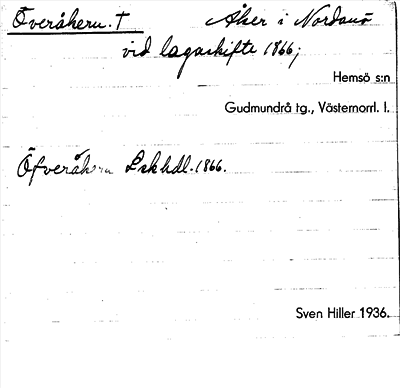 Överåkern. † Åker i Nordanö
vid lagaskifte 1866;
Hemsö s:n
Gudmundrå tg., Västernorrl. l.
Öfveråkern Lskhdl. 1866.
Sven Hiller 1936.